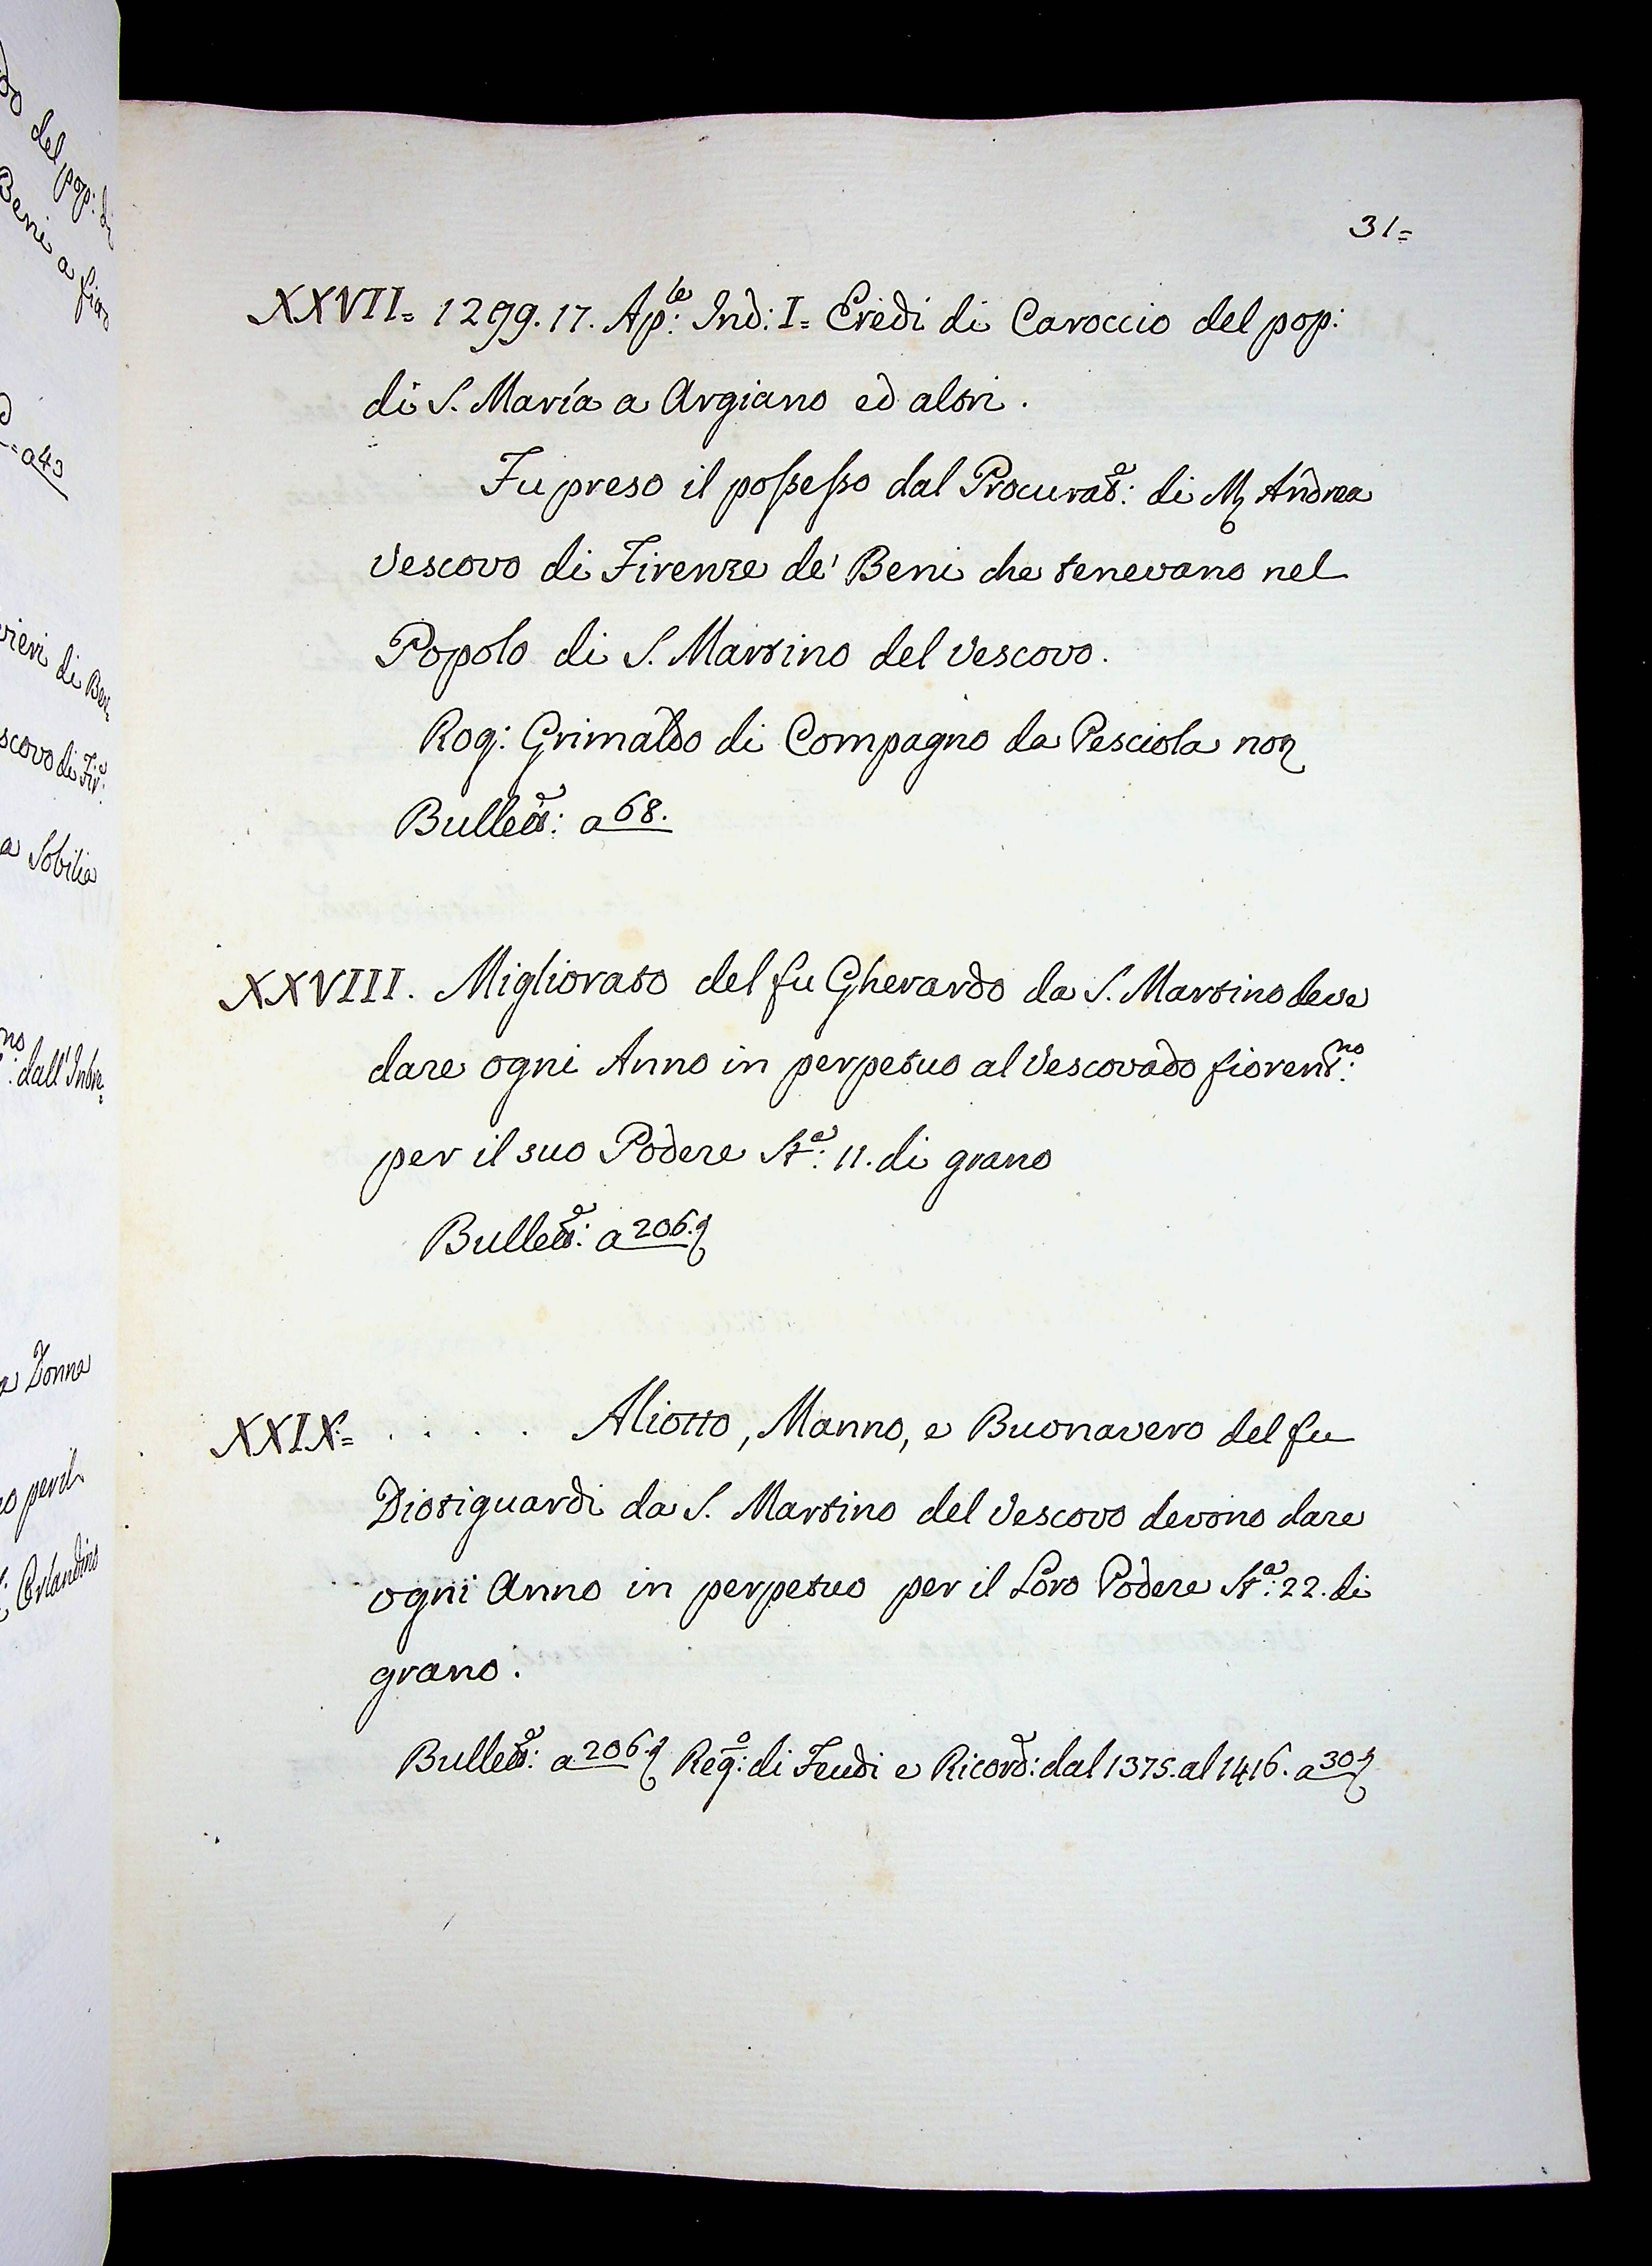 31=
XXVII= 1299. 17. Ap:le Ind: I= Eredi di Caroccio del pop:
di S. María a Argiano ed altri.
Fu preso il possesso dal Procurat:e di M. Andrea
Vescovo di Firenze de' Beni che tenevano nel
Popolo di S. Martino del Vescovo.
Rog: Grimaldo di Compagno da Pesciola not
Bullett:e a 68.
XXVIII. Migliorato del fu Gherardo da S. Martino deve
dare ogni Anno in perpetuo al Vescovado fiorent:no
per il suo Podere St:a 11. di grano
Bullett:e a 206.
XXIX= . . . . Aliotto, Manno, e Buonavero del fu
Diotiguardi da S. Martino del Vescovo devono dare
ogni Anno in perpetuo per il Loro Podere St:a 22. di
grano.
Bullett:e a 206. Reg:o di Feudi e Ricord:e dal 1375. al 1416. a 30